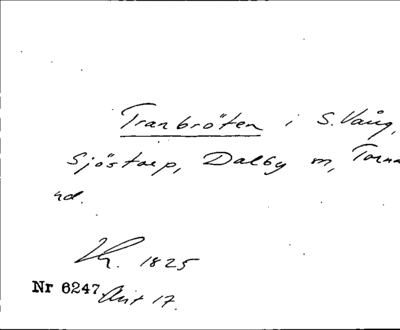 Tranbröten i S. Vång,
Sjöstorp, Dalby m, Torna
hd.
1825
Nr 6247 Akt 17.